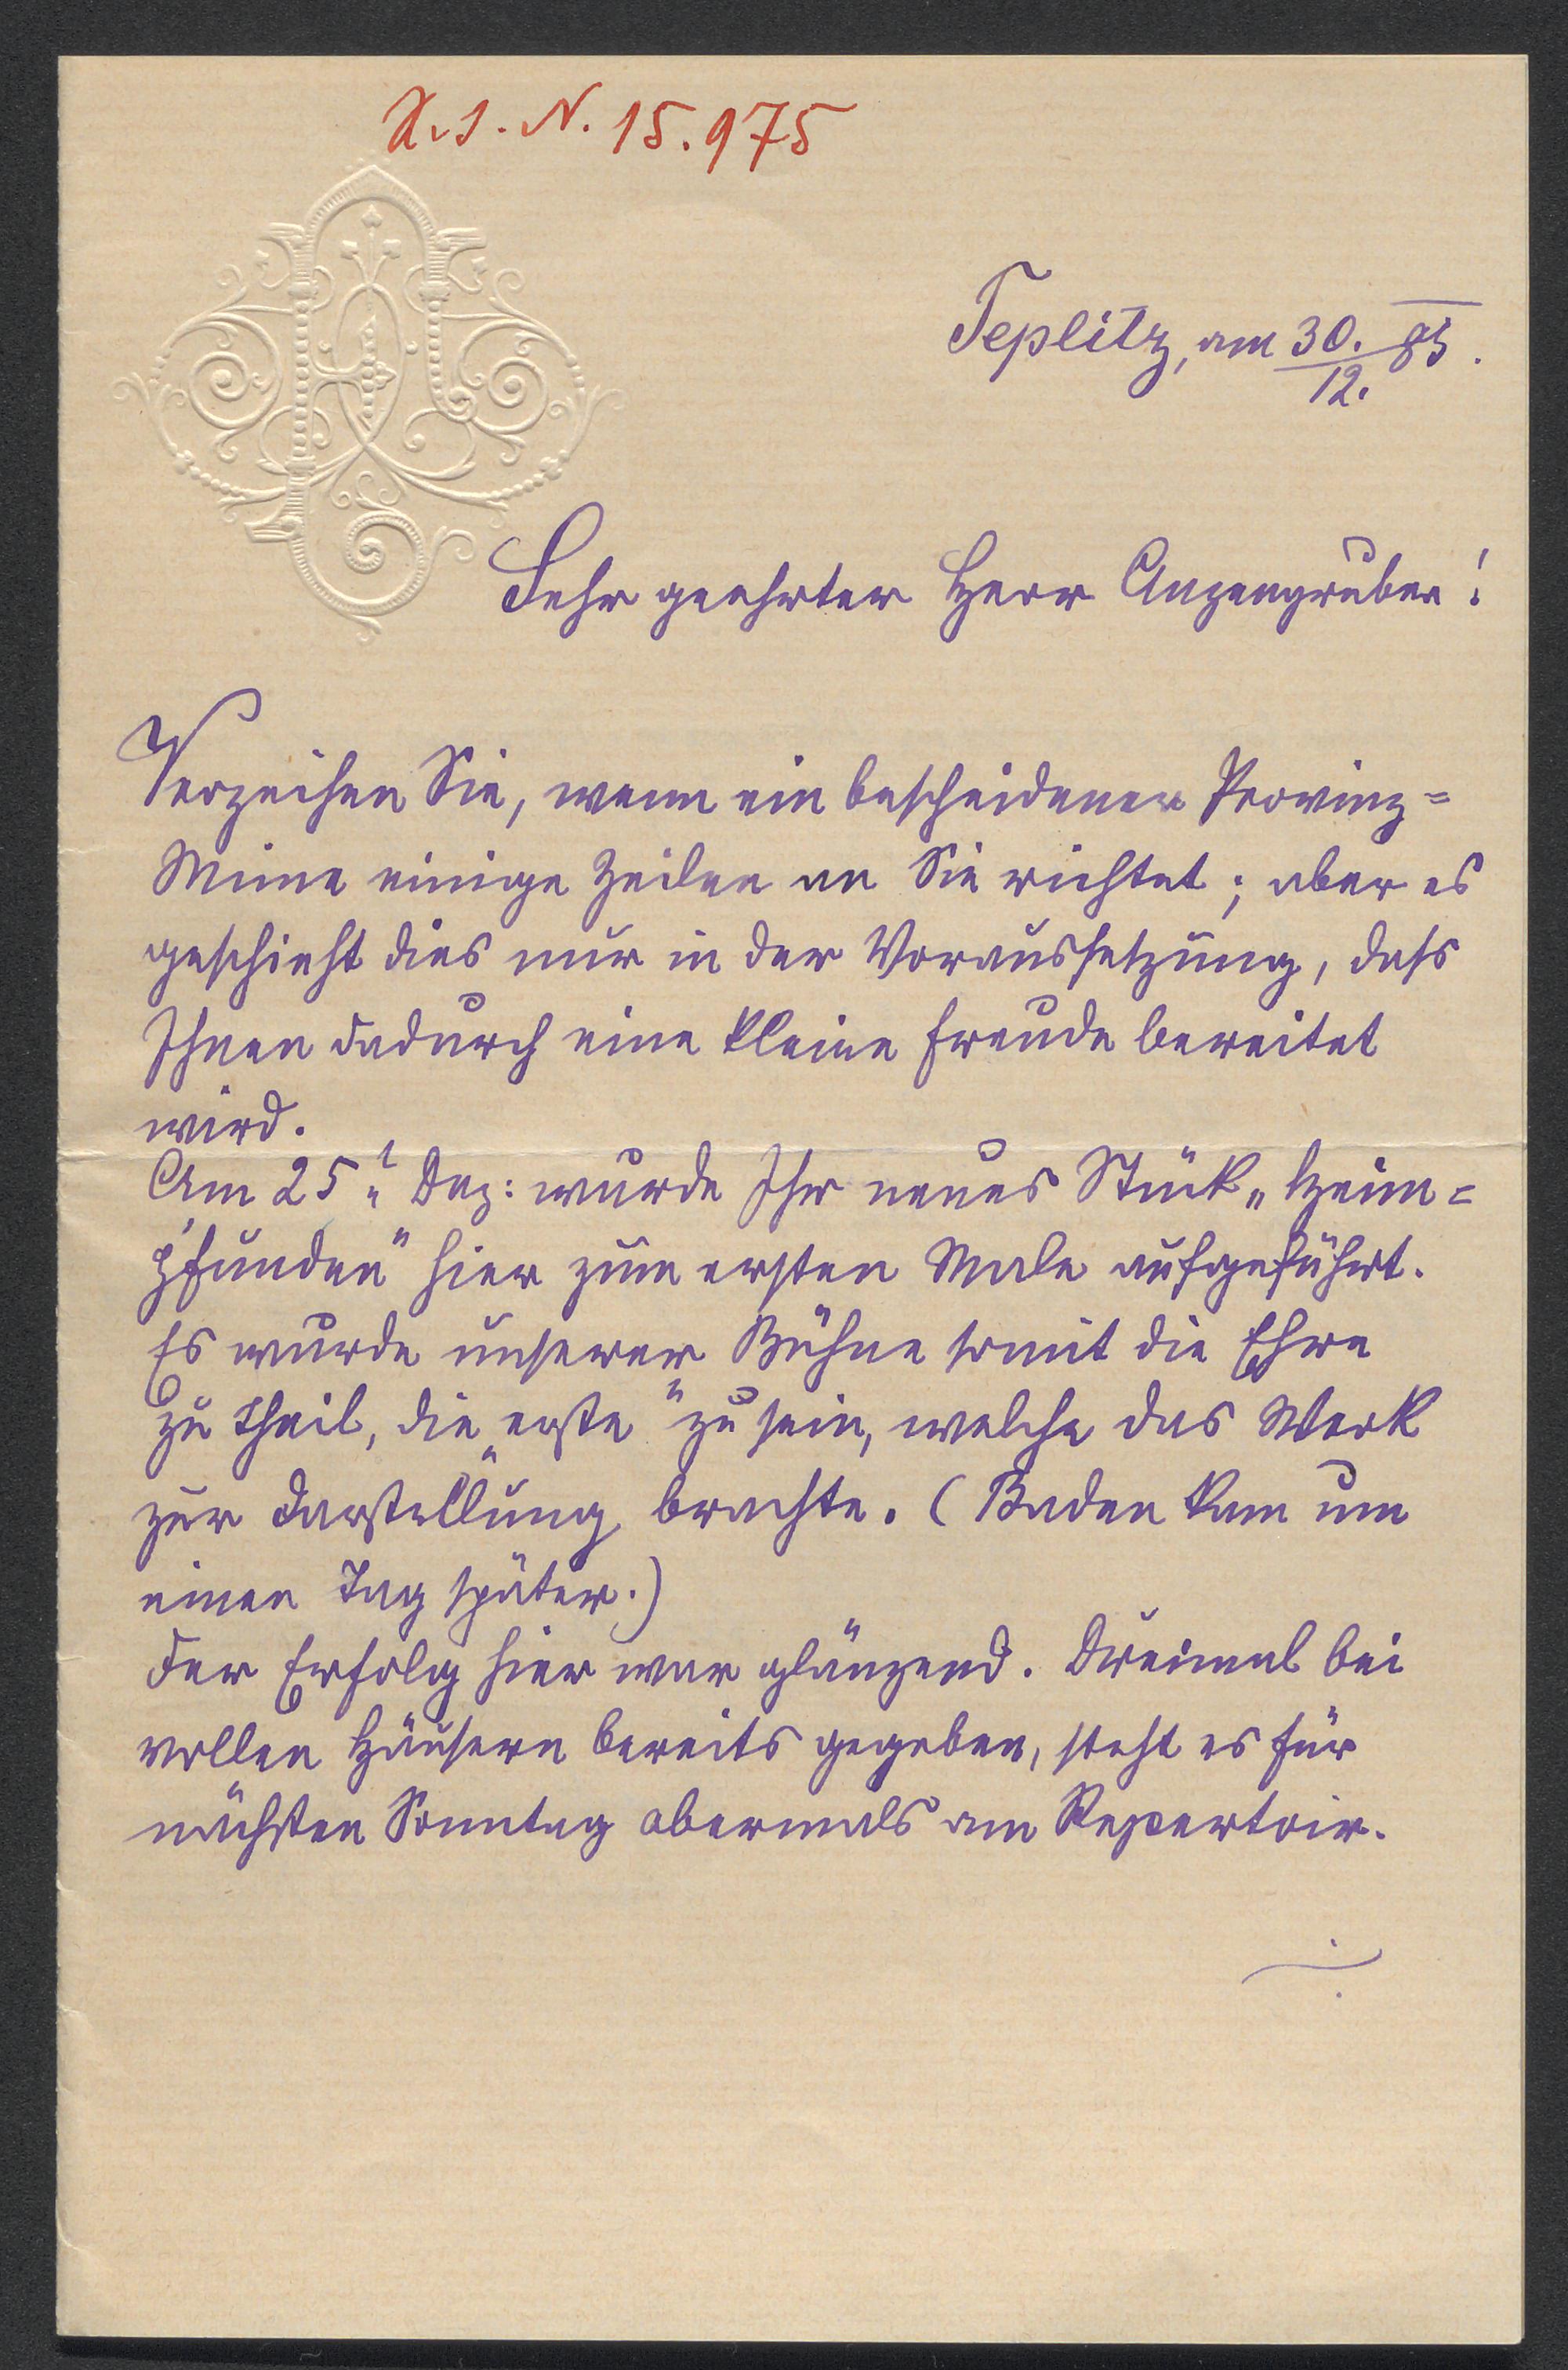 H.I.N. 15.975
Teplitz, am 30./12. 85.
Sehr geehrter Herr Anzengruber!
Verzeihen Sie, wenn ein bescheidener Provinz=
Mime einige Zeilen an Sie richtet; aber es
geschieht dies nur in der Voraussetzung, dass
Ihnen dadurch eine kleine Freude bereitet
wird.
Am 25t Dez: wurde Ihr neues Stück „Heim=
g'funden" hier zum ersten Male aufgeführt.
Es wurde unserer Bühne somit die Ehre
zu Theil, die „erste" zu sein, welche das Werk
zur Darstellung brachte. (Baden kam um
einen Tag später.)
Der Erfolg hier war glänzend. Dreimal bei
vollen Häusern bereits gegeben, steht es für
nächsten Sonntag abermals am Repertoir.